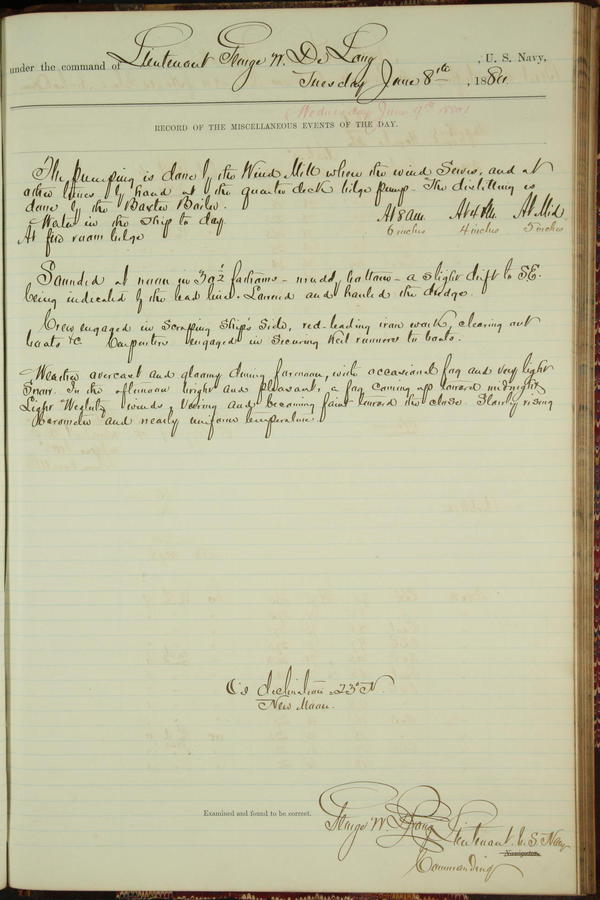 under the command of Lieutenant George W. De Long, U. S. Navy,
Tuesday June 8th, 1880.
(Wednesday June 9th 1880)
RECORD OF THE MISCELLANEOUS EVENTS OF THE DAY.
The pumping is done by the Wind Mill when the wind serves, and at
other times by hand at the quarter deck bilge pump. The distilling is
done by the Baxter Boiler.
Water in the Ship to day. At 8 am. At 4 PM. At Mid
At fire room bilge 6 inches 4 inches 5 inches
Sounded at noon in 39½ fathoms - mud bottom - a slight drift to SE.
being indicated by the lead line. Lowered and hauled the dredge.
Crew engaged in Scraping Ship's Side, red-leading iron work, clearing out
boats &c. Carpenters engaged in Securing Keel runners to boats.
Weather overcast and gloomy during forenoon, with occasional fog and very light
Snow. In the afternoon bright and pleasant, a fog coming up toward midnight.
Light Westerly winds, veering and becoming faint toward the close. Slowly rising
barometer and nearly uniform temperature.
declination 23° N.
New Moon.
Examined and found to be correct.
George W. De Long Lieutenant. U. S. Navy
Navigator.
Commanding